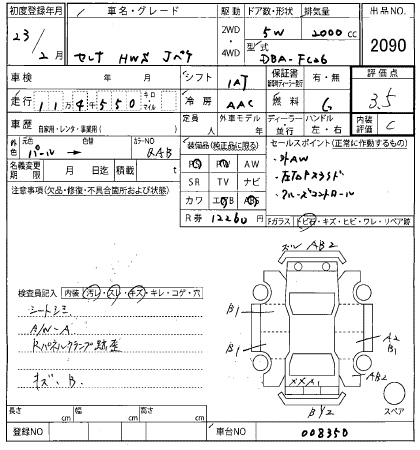 初度登録年月 車名・グレード 駆動 ドア数・形状 排気量 出品NO.
23/2月 セレナ HWS Jパケ 2WD・4WD 5W 2000cc 2090
型式 DBA-FC26
車検 年 月 シフト 1AT 保証書 有・無 評価点
走行 11万4千550 キロ マイル 冷房 AAC 燃料 G 3.5
車歴 自家用・レンタ・事業用( ) 定員 人 外車モデル ディーラー・並行 ハンドル 左・右 内装評価 C
外色 元色 パール → 色替 カラーNO QAB
装備品(純正品に限る) セールスポイント(正常に作動するもの)
名義変更期限 月 日迄 積載 t
PS PW AW ・外AW
注意事項(欠品・修復・不具合箇所および状態) SR TV ナビ ・左右Pスライド
カワ エアB ABS ・クルーズコントロール
R券 12260円 Fガラス トビ石・キズ・ヒビ・ワレ・リペア跡
ズレ AB2
検査員記入 内装(汚レ・スレ・キズ・キレ・コゲ・穴)
シートシミ B1 A2
A/W-A B1 B1
Rパネルクランプ跡歪 AB2
キズ、B. XXA1
BY2 スペア
長さ cm 幅 cm 高さ cm
登録NO 車台NO 008350